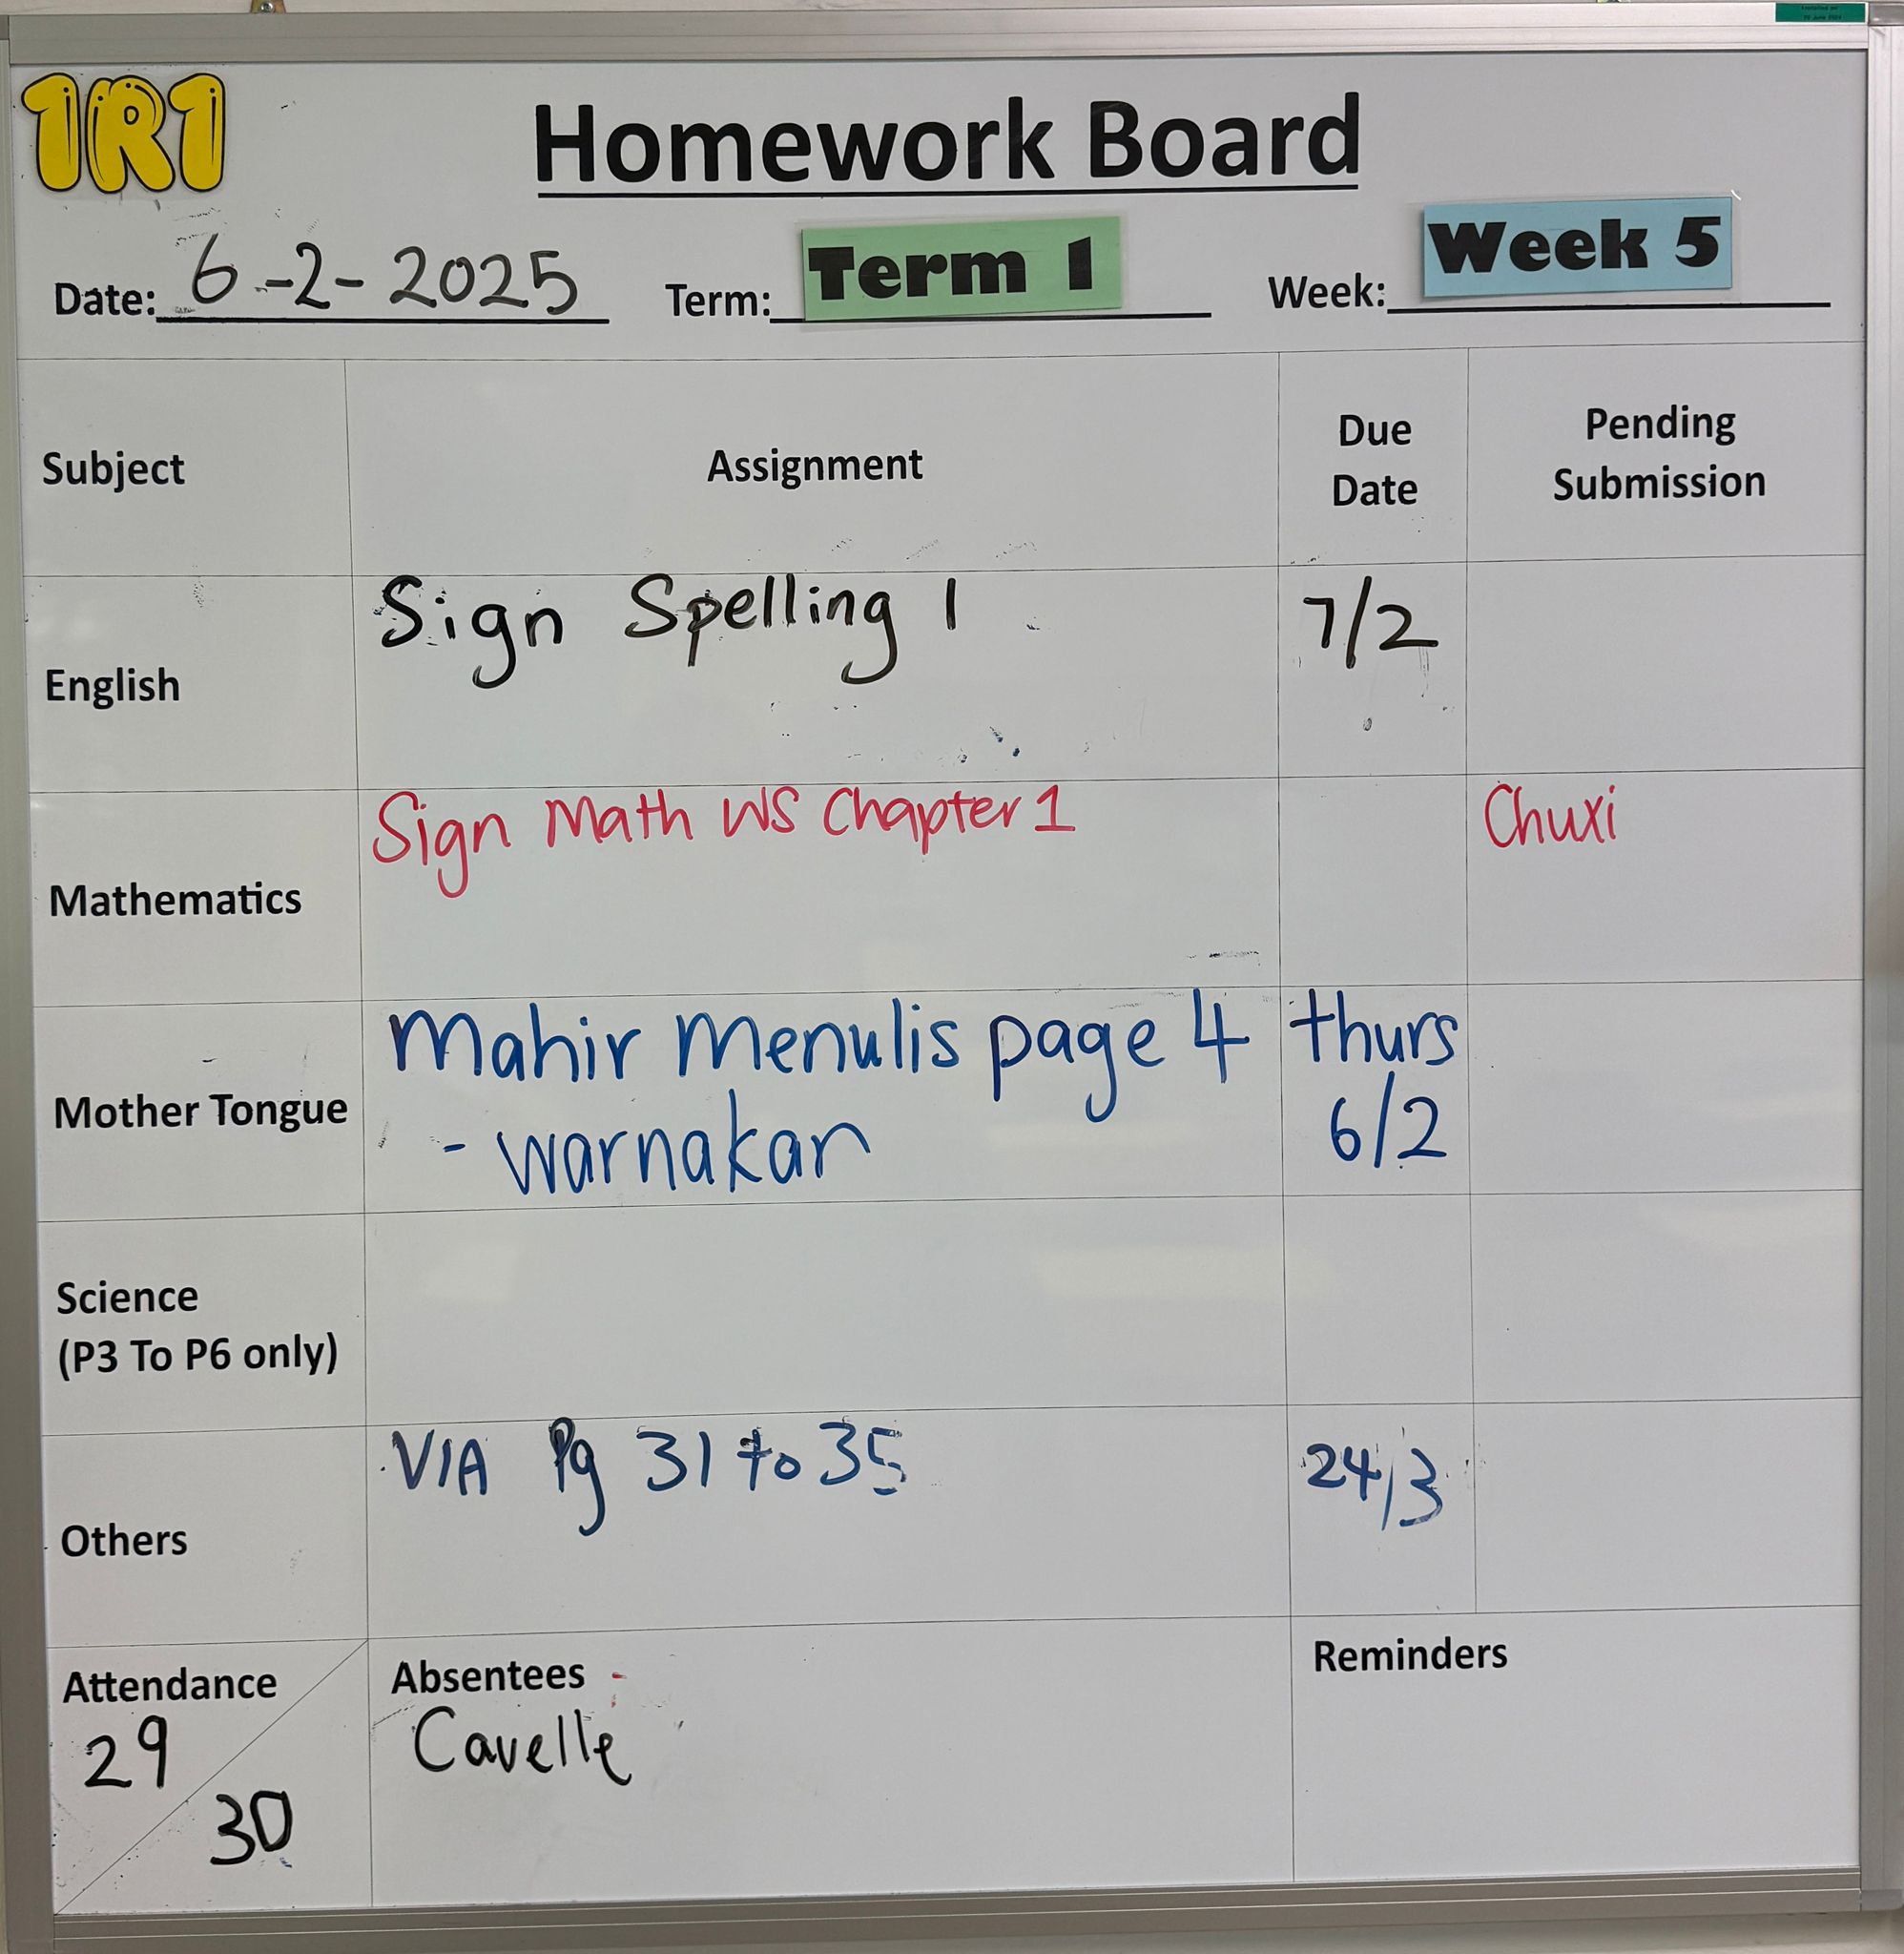 1R1
Homework Board
Date: 6-2-2025 Term: Term 1 Week: Week 5
Subject Assignment Due Date Pending Submission
English Sign Spelling 1 7/2
Mathematics Sign Math WS Chapter 1 Chuxi
Mother Tongue Mahir Menulis page 4 thurs
- warnakan 6/2
Science
(P3 To P6 only)
Others VIA Pg 31 to 35 24/3
Attendance Absentees Reminders
29 Cavelle
30